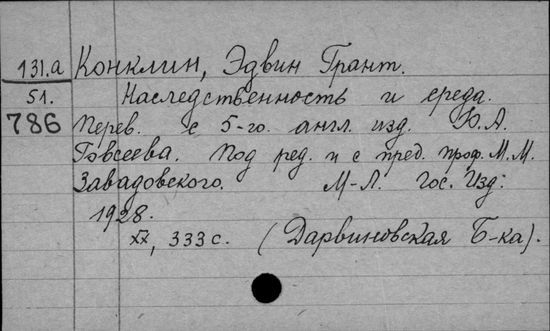 131.а Конклин, Эдвин Грант.
51. Наследственность и среда.
786 Перев. с 5-го. англ. изд. Ю.А.
Говсеева. Под ред. и с пред. проф. М.М.
Завадовского. М-Л. Гос. Изд:
1928.
XX, 333 с. (Дарвиновская Б-ка).